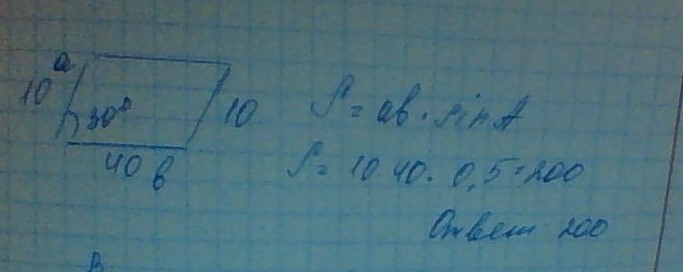 a
10
30°
10
40 b
S = ab · sin A
S = 10 · 40 · 0,5 = 200
Ответ 200
B